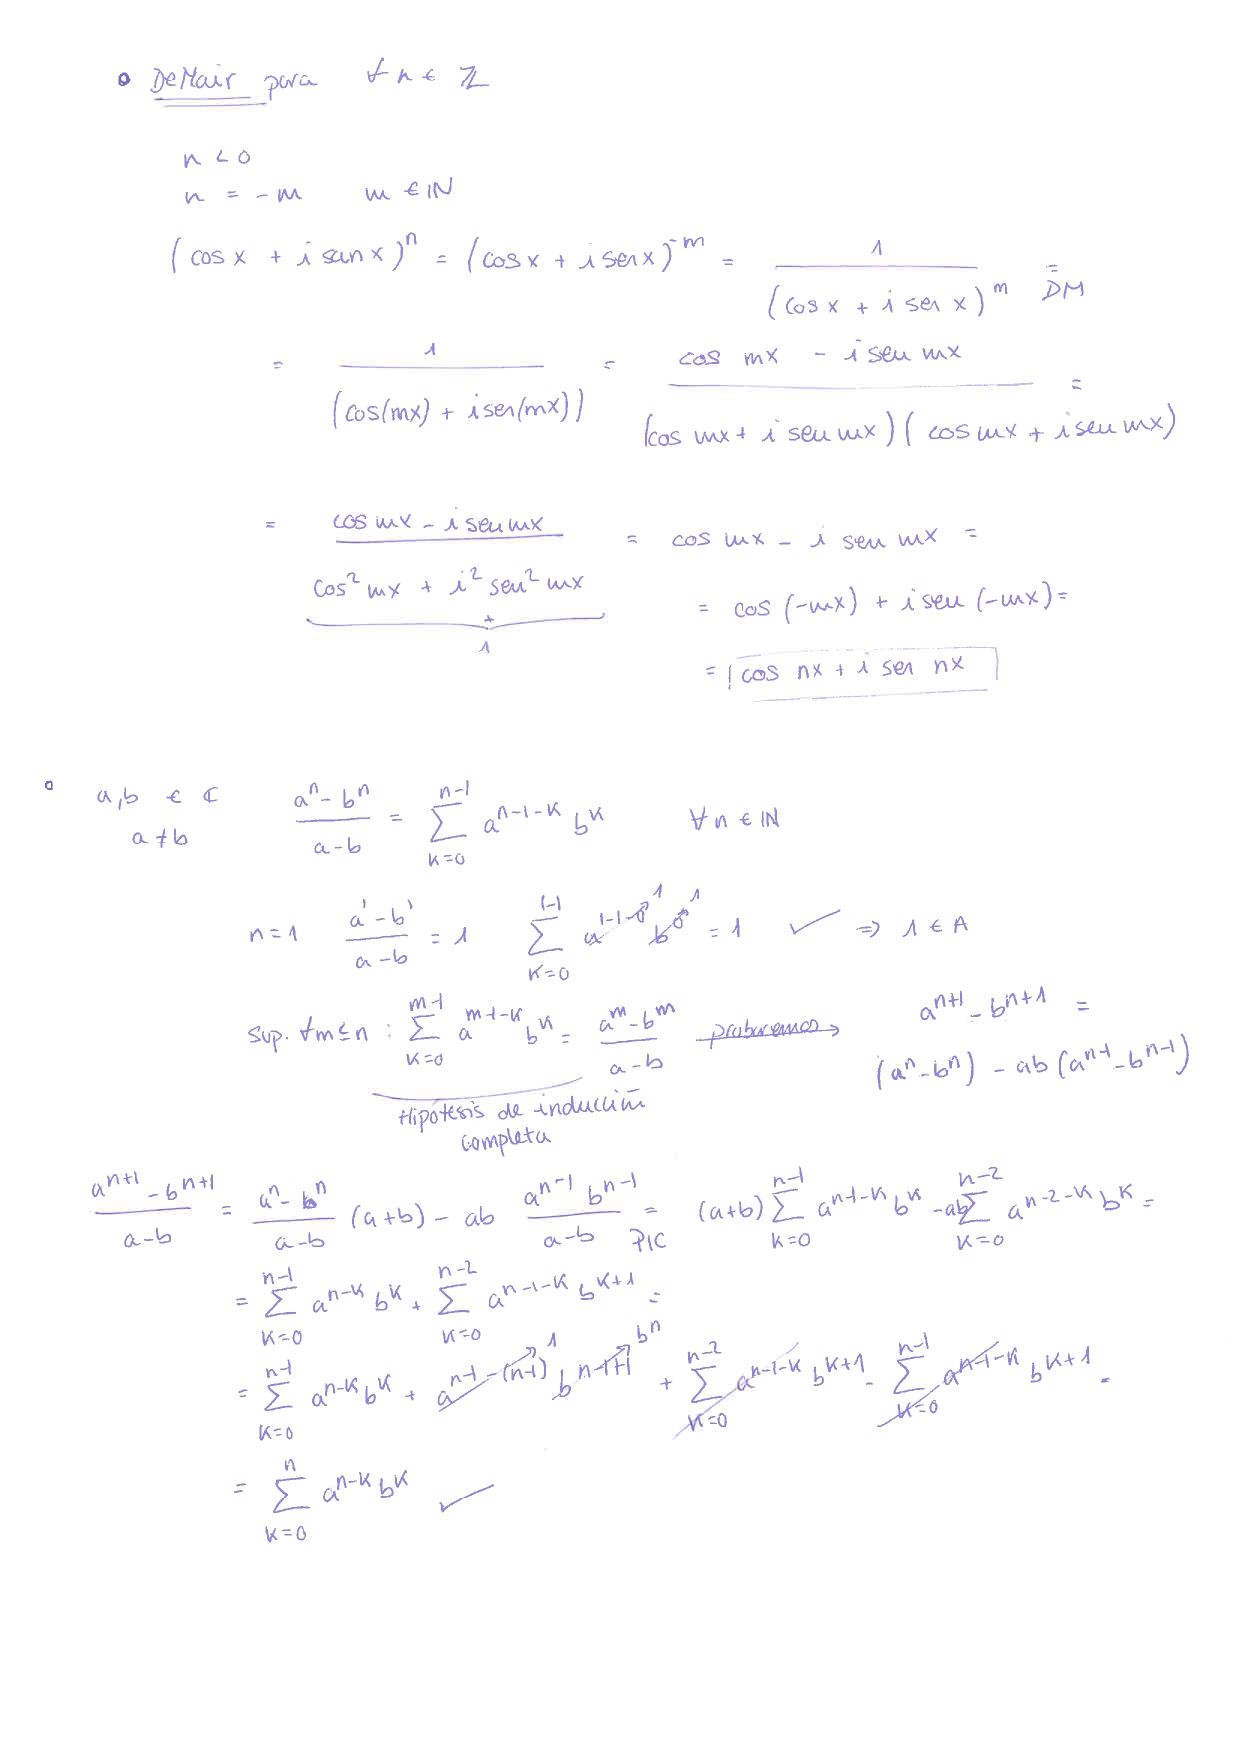 • DeMair para ∀ n ∈ ℤ
n < 0
n = -m m ∈ IN
(cos x + i san x)^n = (cos x + i sen x)^-m = 1 / (cos x + i sen x)^m = DM
= 1 / (cos(mx) + i sen(mx)) = cos mx - i sen mx / (cos mx + i sen mx)(cos mx + i sen mx) =
= cos mx - i sen mx / cos² mx + i² sen² mx = cos mx - i sen mx =
1
= cos (-mx) + i sen (-mx) =
= cos nx + i sen nx
• a,b ∈ ℂ a^n - b^n / a-b = Σ_{k=0}^{n-1} a^{n-1-k} b^k ∀ n ∈ IN
a ≠ b
n=1 a^1 - b^1 / a-b = 1 Σ_{k=0}^{1-1} a^{1-1-0} b^0 = 1 ✓ ⇒ 1 ∈ A
Sup. ∀m≤n : Σ_{k=0}^{m-1} a^{m-1-k} b^k = a^m - b^m / a-b probaremos → a^{n+1} - b^{n+1} =
(a^n - b^n) - ab (a^{n-1} - b^{n-1})
Hipótesis de inducción
completa
a^{n+1} - b^{n+1} / a-b = a^n - b^n / a-b (a+b) - ab a^{n-1} b^{n-1} / a-b = PIC (a+b) Σ_{k=0}^{n-1} a^{n-1-k} b^k - ab Σ_{k=0}^{n-2} a^{n-2-k} b^k =
= Σ_{k=0}^{n-1} a^{n-k} b^k + Σ_{k=0}^{n-2} a^{n-1-k} b^{k+1} =
= Σ_{k=0}^{n-1} a^{n-k} b^k + a^{n-1-(n-1)} 1 b^{n-1+1} b^n + Σ_{k=0}^{n-2} a^{n-1-k} b^{k+1} - Σ_{k=0}^{n-1} a^{n-1-k} b^{k+1} =
= Σ_{k=0}^{n} a^{n-k} b^k ✓